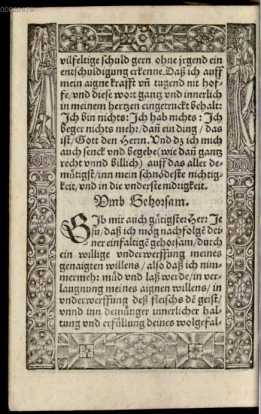 vilfeltige schuld gern ohne jrgend ein
entschuldigung erkenne. Daß ich auff
mein aigne krafft vñ tugend nit hof-
fe, vnd diese wort gantz vnd innerlich
in meinem hertzen eingetruckt behalt:
Ich bin nichts: Ich hab nichts: Ich
beger nichts mehr, dañ ein ding / das
ist, Gott den Herrn. Vnd dz ich mich
auch senck vnd begebe (wie dañ gantz
recht vnnd billich) auff das aller de-
mütigst, inn mein schnödeste nichtig-
keit, vnd in die vnderste nidrigkeit.
Vmb Gehorsam.
GIb mir auch gütigster Herr Je
su, daß ich mög nachfolgẽ dei-
ner einfaltigẽ gehorsam, durch
ein willige vnderwerffung meines
genaigten willens / also daß ich nim-
mermehr mild vnd laß werde, in ver-
laugnung meines aignen willens, in
vnderwerffung deß fleischs dẽ geist,
vnnd inn demütiger innerlicher hal-
tung vnd erfüllung deines wolgefal-